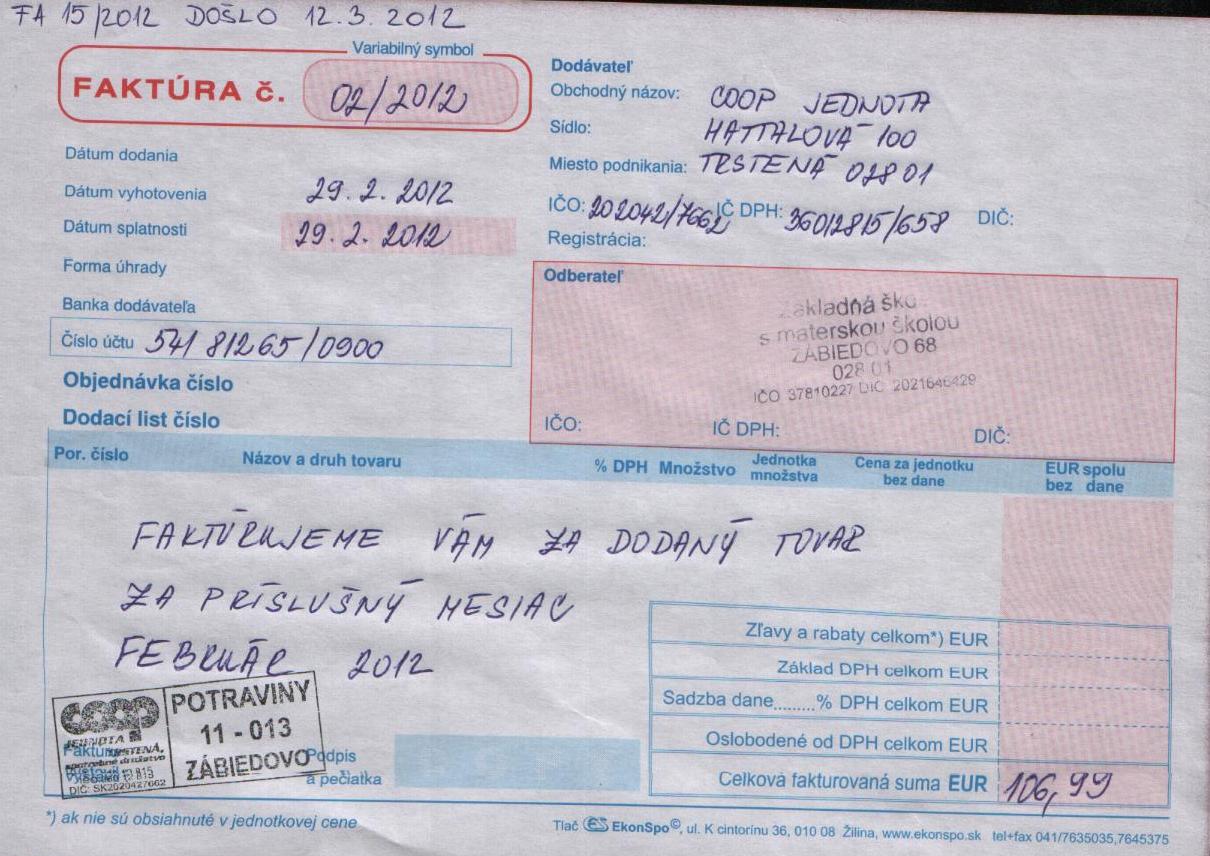 FA 15/2012 DOŠLO 12.3.2012
Variabilný symbol
FAKTÚRA č. 02/2012
Dátum dodania
Dátum vyhotovenia 29.2.2012
Dátum splatnosti 29.2.2012
Forma úhrady
Banka dodávateľa
Číslo účtu 54181265/0900
Objednávka číslo
Dodací list číslo
Dodávateľ
Obchodný názov: COOP JEDNOTA
Sídlo: HATTALOVÁ 100
Miesto podnikania: TRSTENÁ 02801
IČO: 202042/7662 IČ DPH: 36012815/658 DIČ:
Registrácia:
Odberateľ
Základná ško
s materskou školou
ZÁBIEDOVO 68
028 01
IČO 37810227 DIČ 2021646429
IČO: IČ DPH: DIČ:
Por. číslo Názov a druh tovaru % DPH Množstvo Jednotka množstva Cena za jednotku bez dane EUR spolu bez dane
FAKTÚRUJEME VÁM ZA DODANÝ TOVAR
ZA PRÍSLUŠNÝ MESIAC
FEBRUÁR 2012
Zľavy a rabaty celkom*) EUR
Základ DPH celkom EUR
Sadzba dane.........% DPH celkom EUR
Oslobodené od DPH celkom EUR
Celková fakturovaná suma EUR 106,99
coop
JEDNOTA
TRSTENÁ,
spotrebné družstvo
DIČ: SK2020427662
POTRAVINY
11 - 013
ZÁBIEDOVO
Podpis
a pečiatka
*) ak nie sú obsiahnuté v jednotkovej cene
Tlač ES EkonSpo©, ul. K cintorínu 36, 010 08 Žilina, www.ekonspo.sk tel+fax 041/7635035,7645375